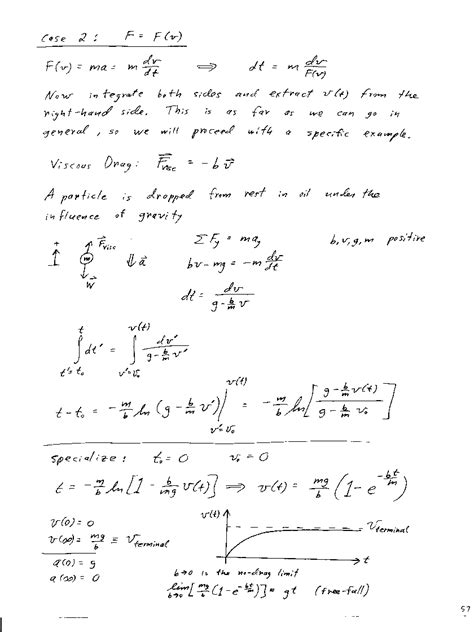 Case 2: F = F(v)
F(v) = ma = m dv/dt ⟹ dt = m dv/F(v)
Now integrate both sides and extract v(t) from the
right-hand side. This is as far as we can go in
general, so we will proceed with a specific example.
Viscous Drag: F⃗visc = -b v⃗
A particle is dropped from rest in oil under the
influence of gravity
+ F⃗visc m W⃗ ⇓ a⃗
ΣFy = may b, v, g, m positive
bv - mg = -m dv/dt
dt = dv/(g - b/m v)
∫_{t'=t₀}^{t} dt' = ∫_{v'=v₀}^{v(t)} dv'/(g - b/m v')
t - t₀ = -m/b ln(g - b/m v') |_{v'=v₀}^{v(t)} = -m/b ln[(g - b/m v(t))/(g - b/m v₀)]
Specialize: t₀ = 0 v₀ = 0
t = -m/b ln[1 - b/mg v(t)] ⟹ v(t) = mg/b (1 - e^{-bt/m})
v(0) = 0
v(∞) = mg/b ≡ vterminal
a(0) = g
a(∞) = 0
v(t) vterminal
t
b→0 is the no-drag limit
lim_{b→0} [mg/b (1 - e^{-bt/m})] = gt (free-fall)
57